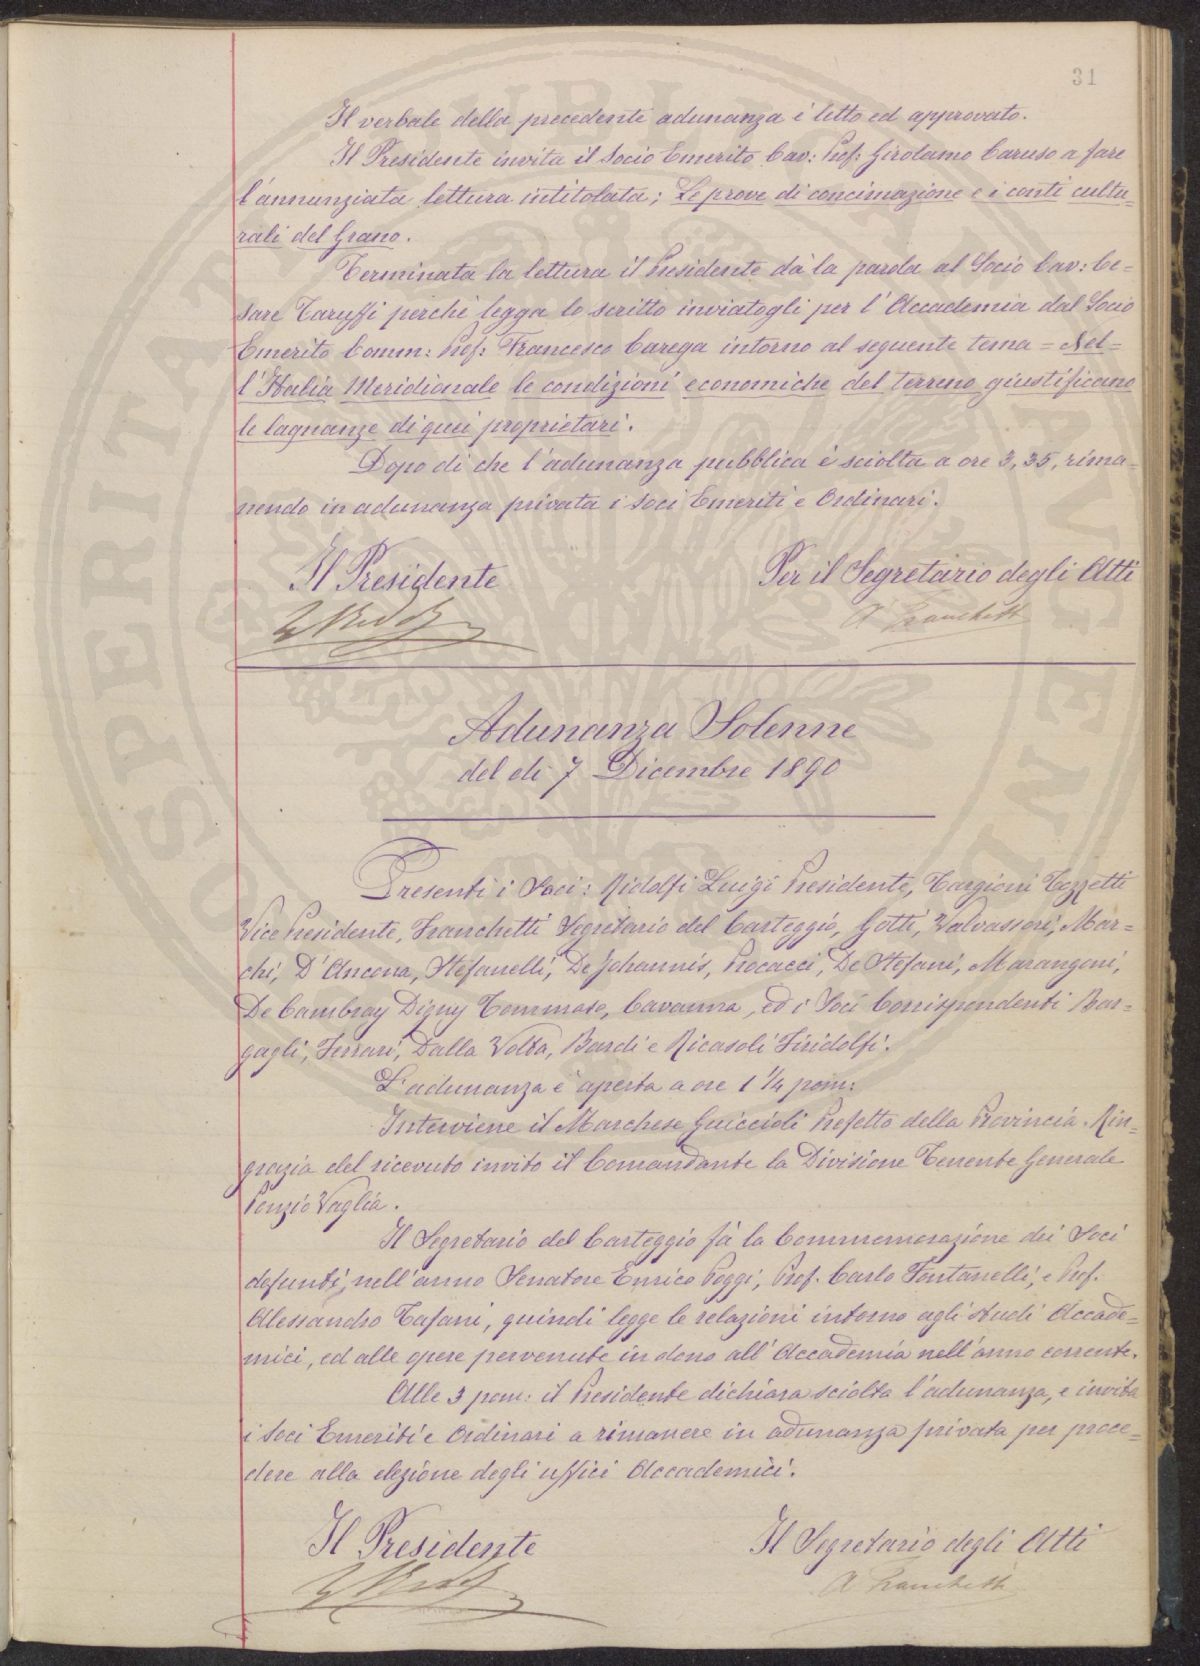 31
Il verbale della precedente adunanza è letto ed approvato.
Il Presidente invita il Socio Emerito Cav: Prof: Girolamo Caruso a fare
l'annunziata lettura intitolata; Le prove di concimazione e i conti cultu=
rali del Grano.
Terminata la lettura il Presidente dà la parola al Socio Cav: Ce=
sare Taruffi perchè legga lo scritto inviatogli per l'Accademia dal Socio
Emerito Comm: Prof: Francesco Carega intorno al seguente tema = Nel=
l'Italia Meridionale le condizioni economiche del terreno giustificano
le lagnanze di quei proprietari.
Dopo di che l'adunanza pubblica è sciolta a ore 3,35, rima=
nendo in adunanza privata i Soci Emeriti e Ordinari.
Il Presidente
Per il Segretario degli Atti
L Ridolfi
A Franchetti
Adunanza Solenne
del dì 7 Dicembre 1890
Presenti i Soci: Ridolfi Luigi Presidente, Targioni Tozzetti
Vice Presidente, Franchetti Segretario del Carteggio, Gotti, Valvassori, Mar=
chi, D'Ancona, Stefanelli, De Johannis, Procacci, De Stefani, Marangoni,
De Cambray Digny Tommaso, Cavanna, ed i Soci Corrispondenti Bar=
gagli, Ferrari, Dalla Volta, Bardi e Ricasoli Firidolfi.
L'adunanza è aperta a ore 1 1/4 pom:
Interviene il Marchese Guiccioli Prefetto della Provincia. Rin=
grazia del ricevuto invito il Comandante la Divisione Tenente Generale
Ponzio Vaglia.
Il Segretario del Carteggio fà la Commemorazione dei Soci
defunti, nell'anno Senatore Enrico Poggi, Prof. Carlo Fontanelli, e Prof.
Alessandro Tafani, quindi legge le relazioni intorno agli studi Accade=
mici, ed alle opere pervenute in dono all'Accademia nell'anno corrente.
Alle 3 pom: il Presidente dichiara sciolta l'adunanza, e invita
i Soci Emeriti e Ordinari a rimanere in adunanza privata per proce=
dere alla elezione degli uffici Accademici.
Il Presidente
Il Segretario degli Atti
L Ridolfi
A Franchetti